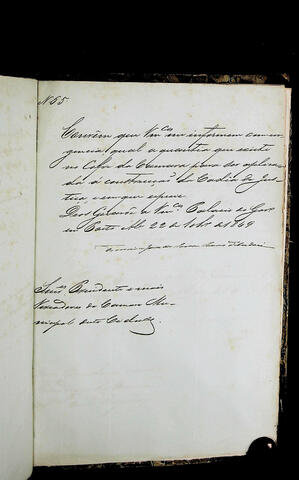 N 55
Convém que Vm.ces me informem com ur-
gencia qual a quantia que existe
no Cofre da Camara para ser aplica-
da á construcção da Cadia de
e em que especie
Deos Guarde a Vm.ces Palacio do Gov
em 22 de de 1869

Senr.s Presidente e mais
Vereadores da Camara Mu-
nicipal desta Cidade.